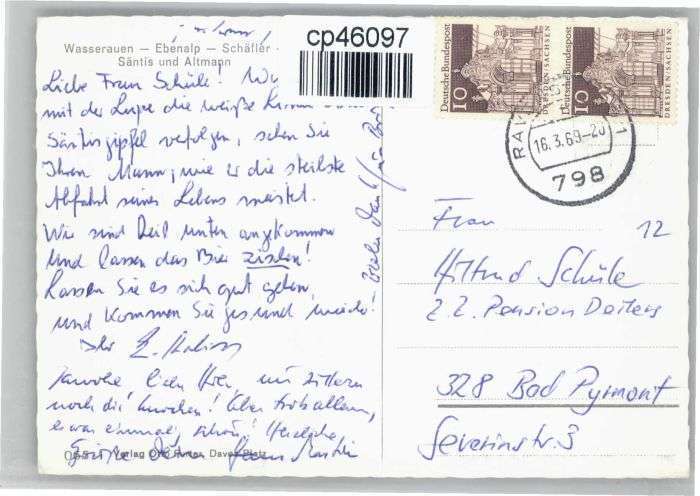 Wasserauen — Ebenalp — Schäfler
Säntis und Altmann
cp46097
Deutsche Bundespost
10
DRESDEN-SACHSEN
Deutsche Bundespost
10
DRESDEN-SACHSEN
16.3.69-20
798
Liebe Frau Schüle!
mit der Lupe die weiße
Säntisgipfel verfolgen, sehen Sie
Ihren Mann, wie er die steilste
Abfahrt seines Lebens meistert.
Wir sind heil unten angekommen
und lassen das Bier zischen!
Lassen Sie es sich gut gehen
und kommen Sie gesund wieder!
Ihr
noch die Knochen! Aber trotz allem,
es war einmal schön! Herzliche
Grüße Dein Hans Martin
Vielen Dank für
Verlag Otto Furter, Davos Platz
Frau
12
Hiltrud Schüle
z.Z. Pension Deiters
328 Bad Pyrmont
Severinstr. 3